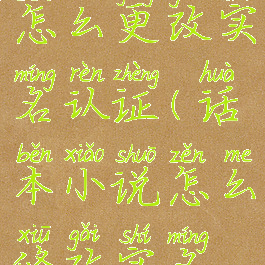 怎么更改实
míng rèn zhèng huà
名认证(话
běn xiǎo shuō zěn me
本小说怎么
xiū gǎi shí míng
修改实名